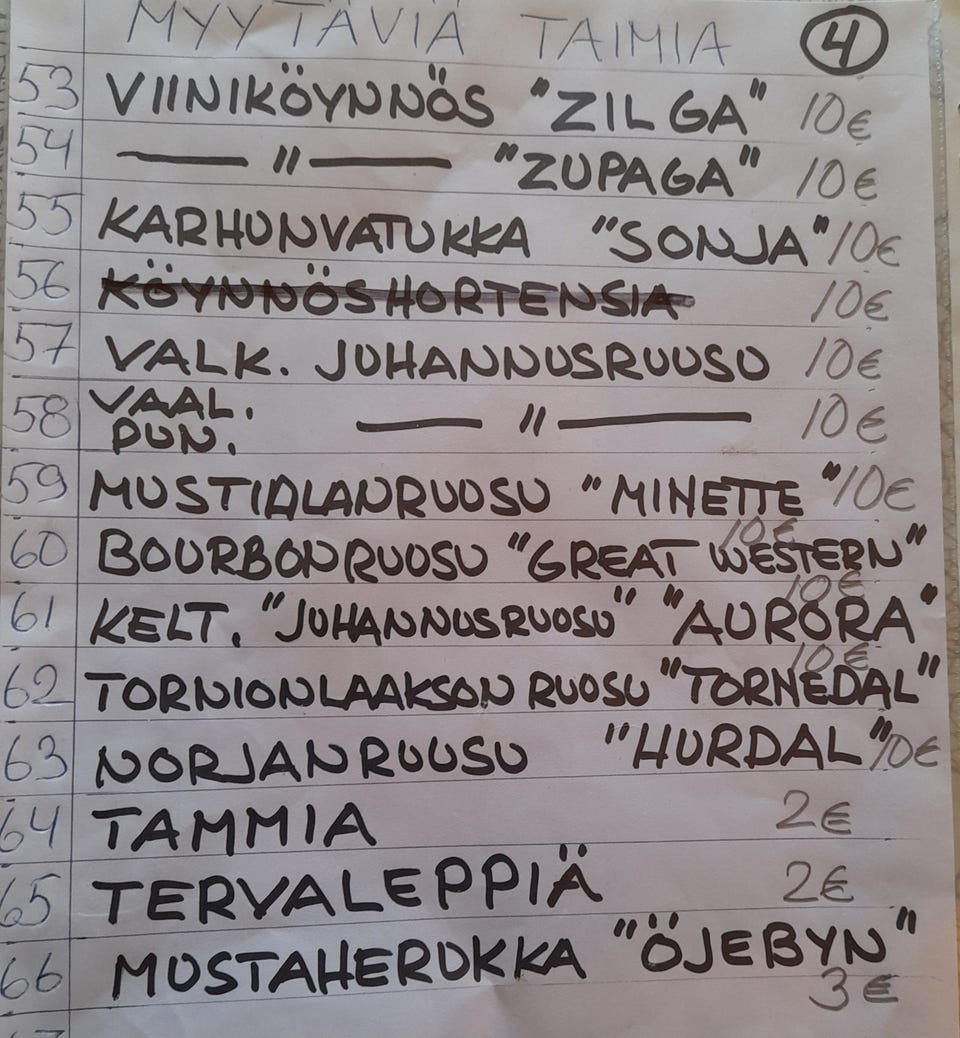 MYYTÄVIÄ TAIMIA 4
53 VIINIKÖYNNÖS "ZILGA" 10€
54 — " — "ZUPAGA" 10€
55 KARHUNVATUKKA "SONJA" 10€
56 KÖYNNÖSHORTENSIA 10€
57 VALK. JUHANNUSRUUSU 10€
58 VAAL. PUN. — " — 10€
59 MUSTIALANRUUSU "MINETTE" 10€
60 BOURBONRUUSU "GREAT WESTERN" 10€
61 KELT. "JUHANNUSRUUSU" "AURORA" 10€
62 TORNIONLAAKSON RUUSU "TORNEDAL" 10€
63 NORJANRUUSU "HURDAL" 10€
64 TAMMIA 2€
65 TERVALEPPIÄ 2€
66 MUSTAHERUKKA "ÖJEBYN" 3€